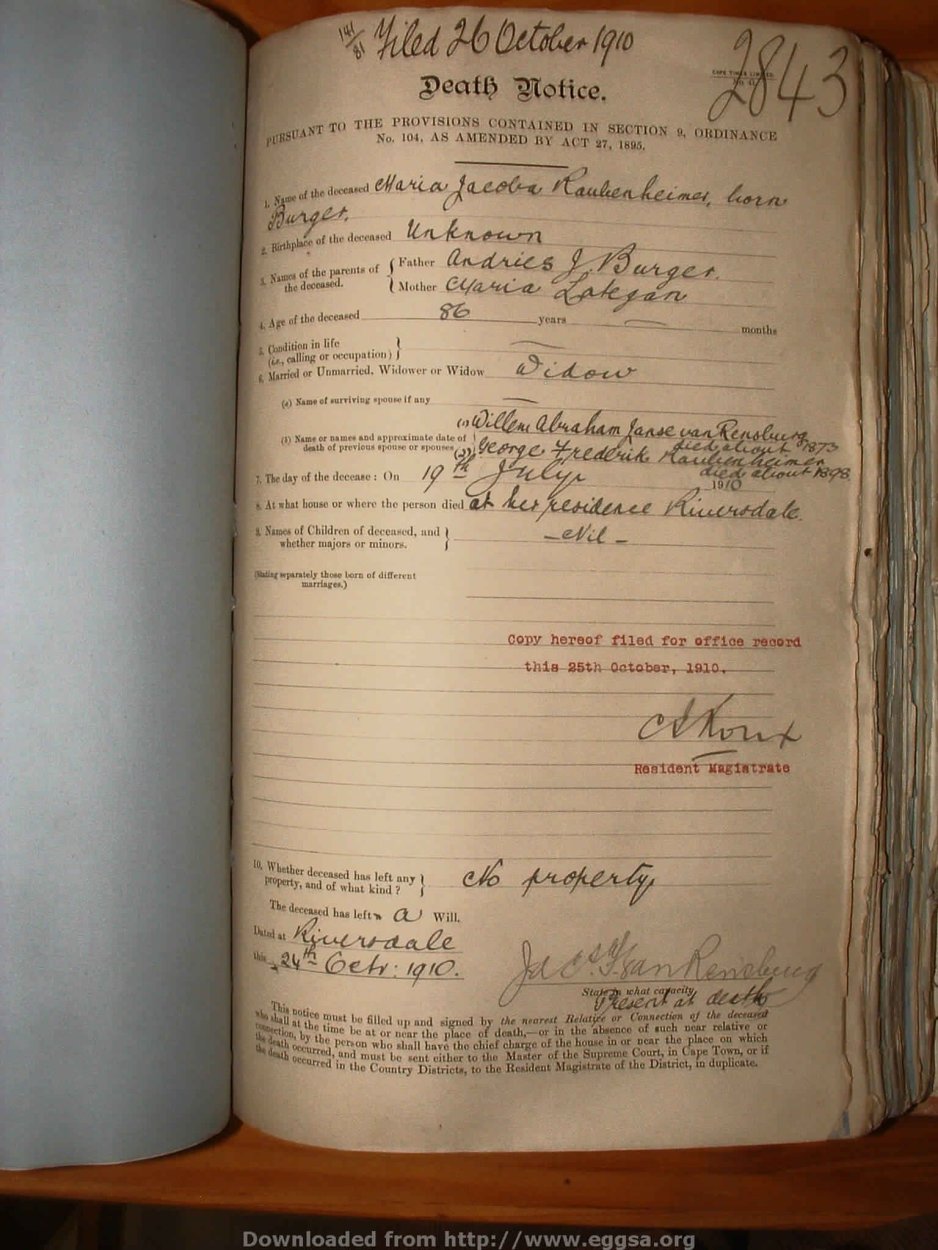 141/81 Filed 26 October 1910
CAPE TIMES LIMITED
2843
Death Notice.
PURSUANT TO THE PROVISIONS CONTAINED IN SECTION 9, ORDINANCE
No. 104, AS AMENDED BY ACT 27, 1895.
1. Name of the deceased Maria Jacoba Raubenheimer, born
Burger.
2. Birthplace of the deceased Unknown
3. Names of the parents of the deceased. { Father Andries J. Burger.
Mother Maria Lategan
4. Age of the deceased 86 years — months
5. Condition in life
(i.e., calling or occupation) } —
6. Married or Unmarried, Widower or Widow Widow
(a) Name of surviving spouse if any —
(b) Name or names and approximate date of death of previous spouse or spouses (1) Willem Abraham Janse van Rensburg died about 1873
(2) George Frederik Raubenheimer died about 1898
7. The day of the decease: On 19th July 1910
8. At what house or where the person died at her residence Riversdale.
9. Names of Children of deceased, and
whether majors or minors. } — Nil —
(Stating separately those born of different
marriages.)
Copy hereof filed for office record
this 25th October, 1910.
Resident Magistrate
10. Whether deceased has left any
property, and of what kind? } No property
The deceased has left a Will.
Dated at Riversdale
this 24th Octr: 1910.
van Rensburg
State in what capacity
Present at death
This notice must be filled up and signed by the nearest Relative or Connection of the deceased
who shall at the time be at or near the place of death,—or in the absence of such near relative or
connection, by the person who shall have the chief charge of the house in or near the place on which
the death occurred, and must be sent either to the Master of the Supreme Court, in Cape Town, or if
the death occurred in the Country Districts, to the Resident Magistrate of the District, in duplicate.
Downloaded from http://www.eggsa.org